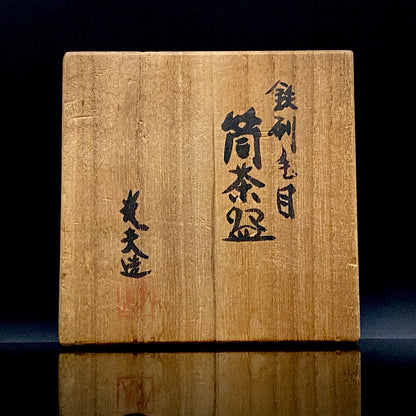 鉄刷毛目
筒茶盌
夫造